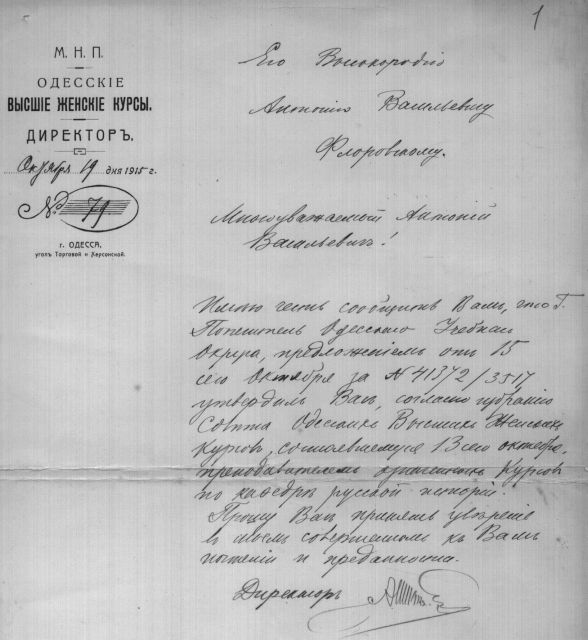 1
М. Н. П.
ОДЕССКІЕ
ВЫСШІЕ ЖЕНСКІЕ КУРСЫ.
ДИРЕКТОРЪ.
Октября 19 дня 1915 г.
№ 79
г. ОДЕССА,
уголъ Торговой и Херсонской.
Его Высокородію
Антонію Васильевичу
Флоровскому.
Многоуважаемый Антоній
Васильевичъ!
Имѣю честь сообщить Вамъ, что Г.
Попечитель Одесскаго Учебнаго
Округа, предложеніемъ отъ 15
сего Октября за № 41372/3517,
утвердилъ Васъ, согласно избранію
Совѣта Одесскихъ Высшихъ Женскихъ
Курсовъ, состоявшемуся 13 сего октября,
преподавателемъ означенныхъ Курсовъ
по кафедрѣ русской исторіи.
Прошу Васъ принять увѣреніе
въ моемъ совершенномъ къ Вамъ
почтеніи и преданности.
Директоръ